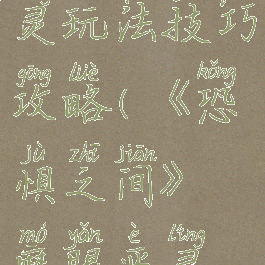 灵玩法技巧
gōng lüè kǒng
攻略(《恐
jù zhī jiān
惧之间》
mó yǎn è líng